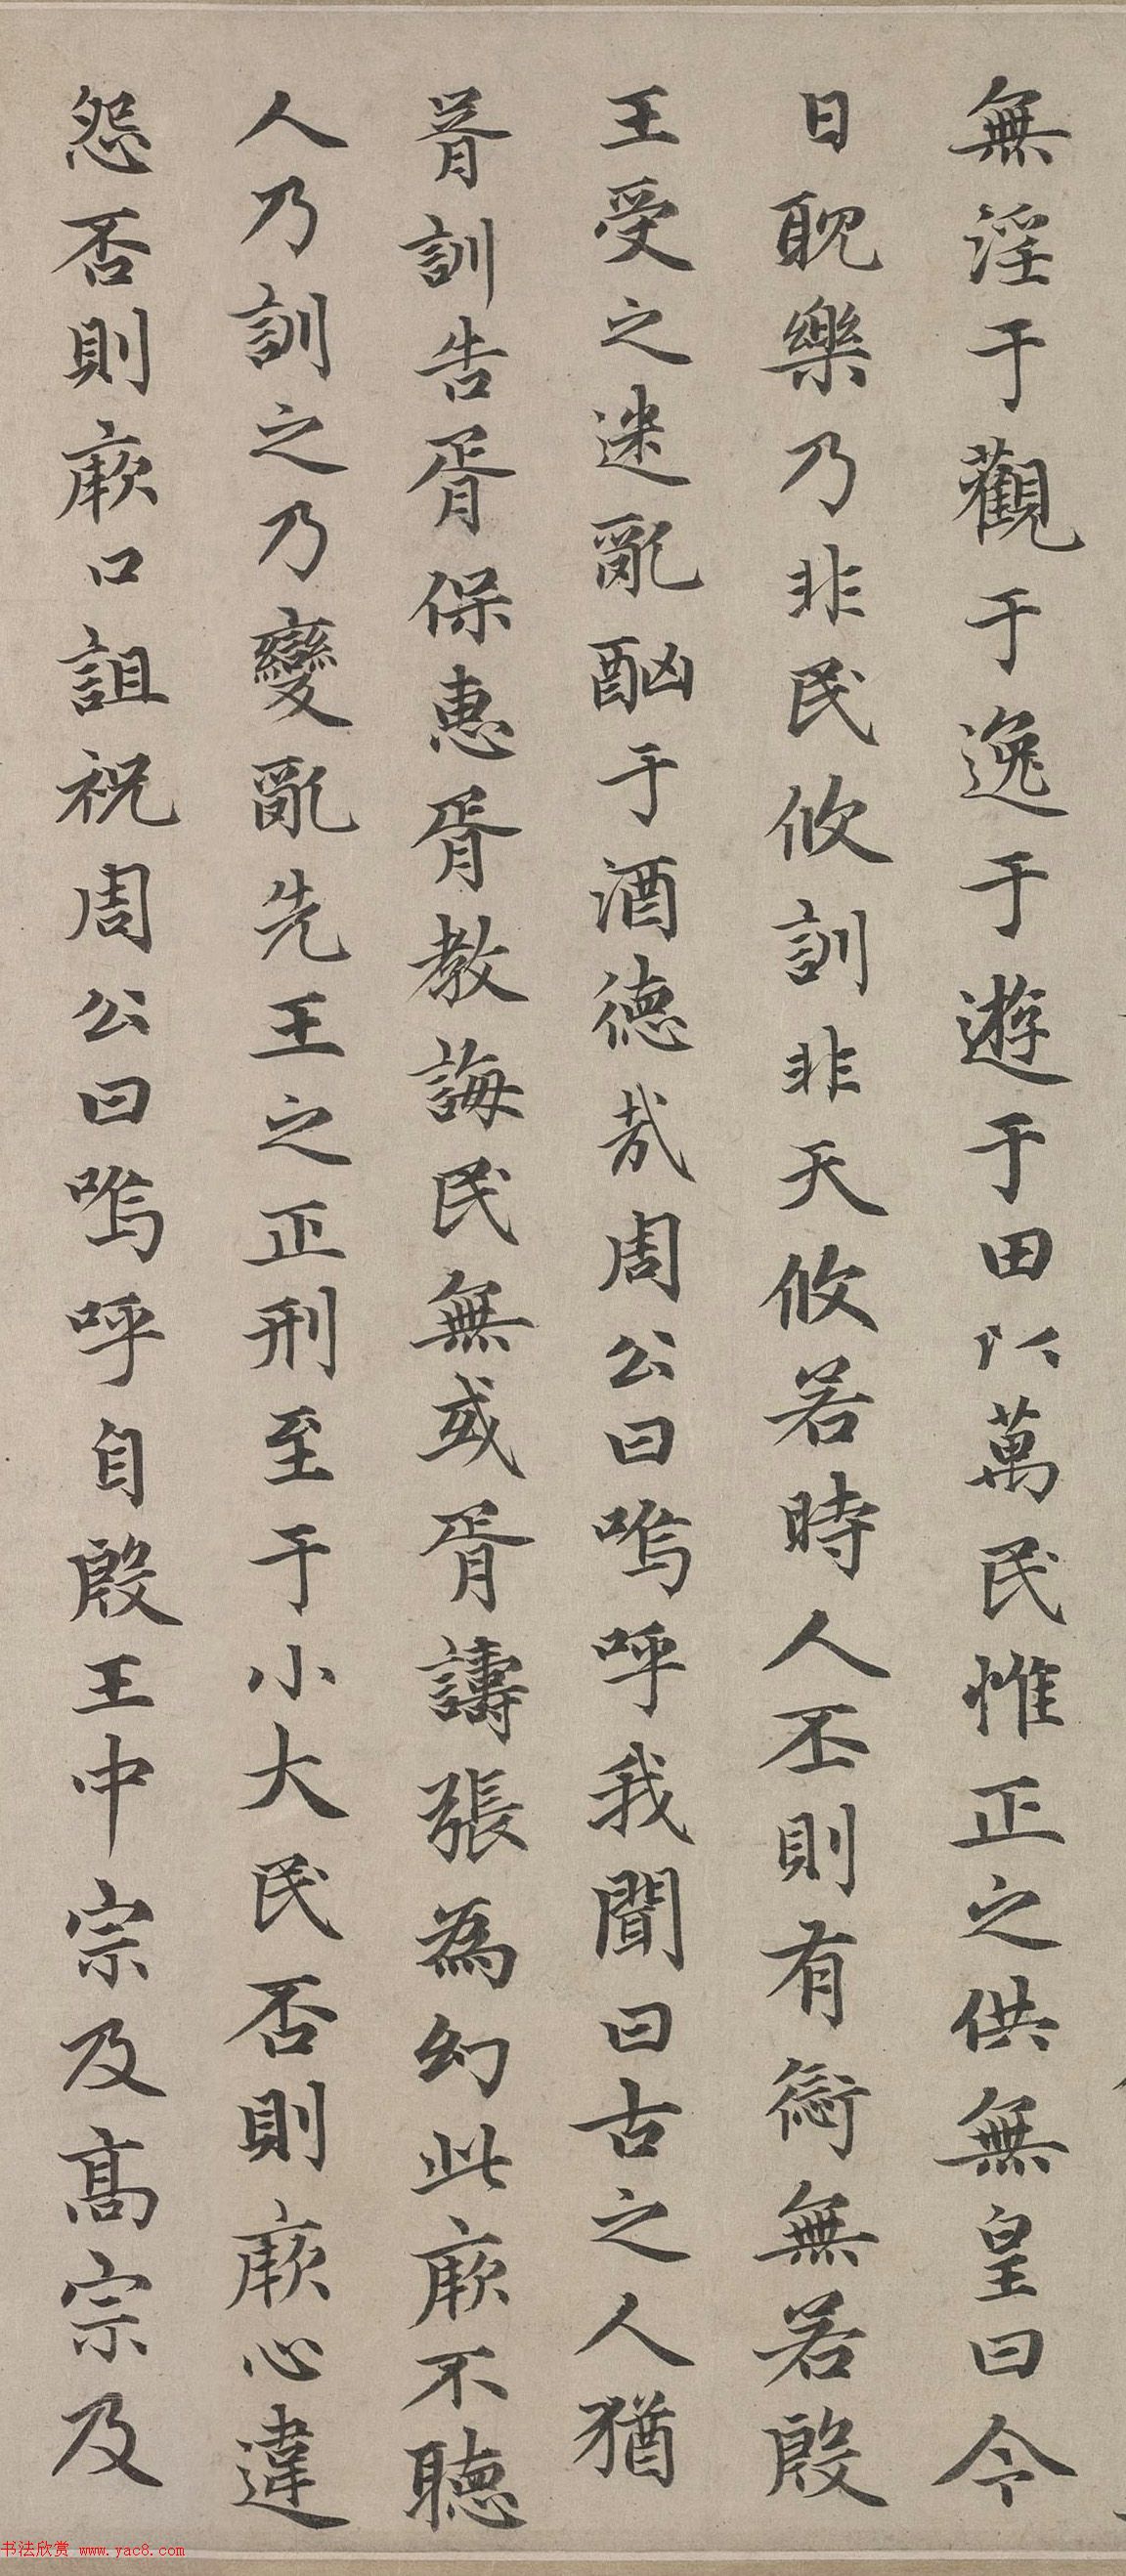 無淫于觀于逸于遊于田以萬民惟正之供無皇曰今
日耽樂乃非民攸訓非天攸若時人丕則有愆無若殷
王受之迷亂酗于酒德哉周公曰嗚呼我聞曰古之人猶
胥訓告胥保惠胥教誨民無或胥譸張為幻此厥不聽
人乃訓之乃變亂先王之正刑至于小大民否則厥心違
怨否則厥口詛祝周公曰嗚呼自殷王中宗及高宗及
书法欣赏 www.yac8.com